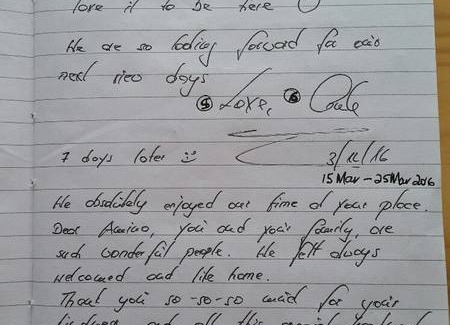 love it to be here
We are so looking forward for our
next nice days
Love,
7 days later
3/12/16
15 Mar - 25 Mar 2016
We absolutely enjoyed our time at your place.
Dear Amino, you and your family, are
such wonderful people. We felt always
welcomed and like home.
Thank you so-so-so much for your
kindness and all this